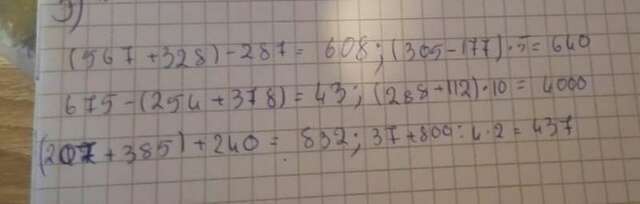 3)
(567 + 328) - 287 = 608; (305 - 177) · 5 = 640
675 - (254 + 378) = 43; (288 + 112) · 10 = 4000
(207 + 385) + 240 = 832; 37 + 800 : 4 · 2 = 437